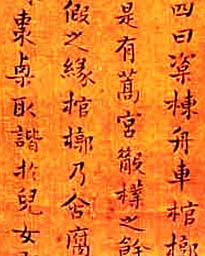 四曰梁棟舟車棺槨
是有蒿宮樸之餘
假之緣棺槨乃含腐
棗栗取諧於兒女